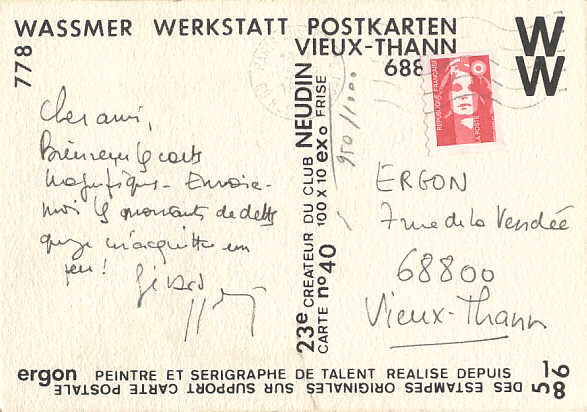 WASSMER WERKSTATT POSTKARTEN
VIEUX-THANN
688
778
W
W
REPUBLIQUE FRANÇAISE
LA POSTE
Cher ami,
Bien reçu les cartes
magnifiques. Envoie-
moi le montant de detts
que je m'acquitte un
peu!
Gérard
23e CREATEUR DU CLUB NEUDIN
CARTE no 40 100 X 10 exo FRISE
950/1000
ERGON
7 rue de la Vendée
68800
Vieux-Thann
ergon PEINTRE ET SERIGRAPHE DE TALENT REALISE DEPUIS
DES ESTAMPES ORIGINALES SUR SUPPORT CARTE POSTALE